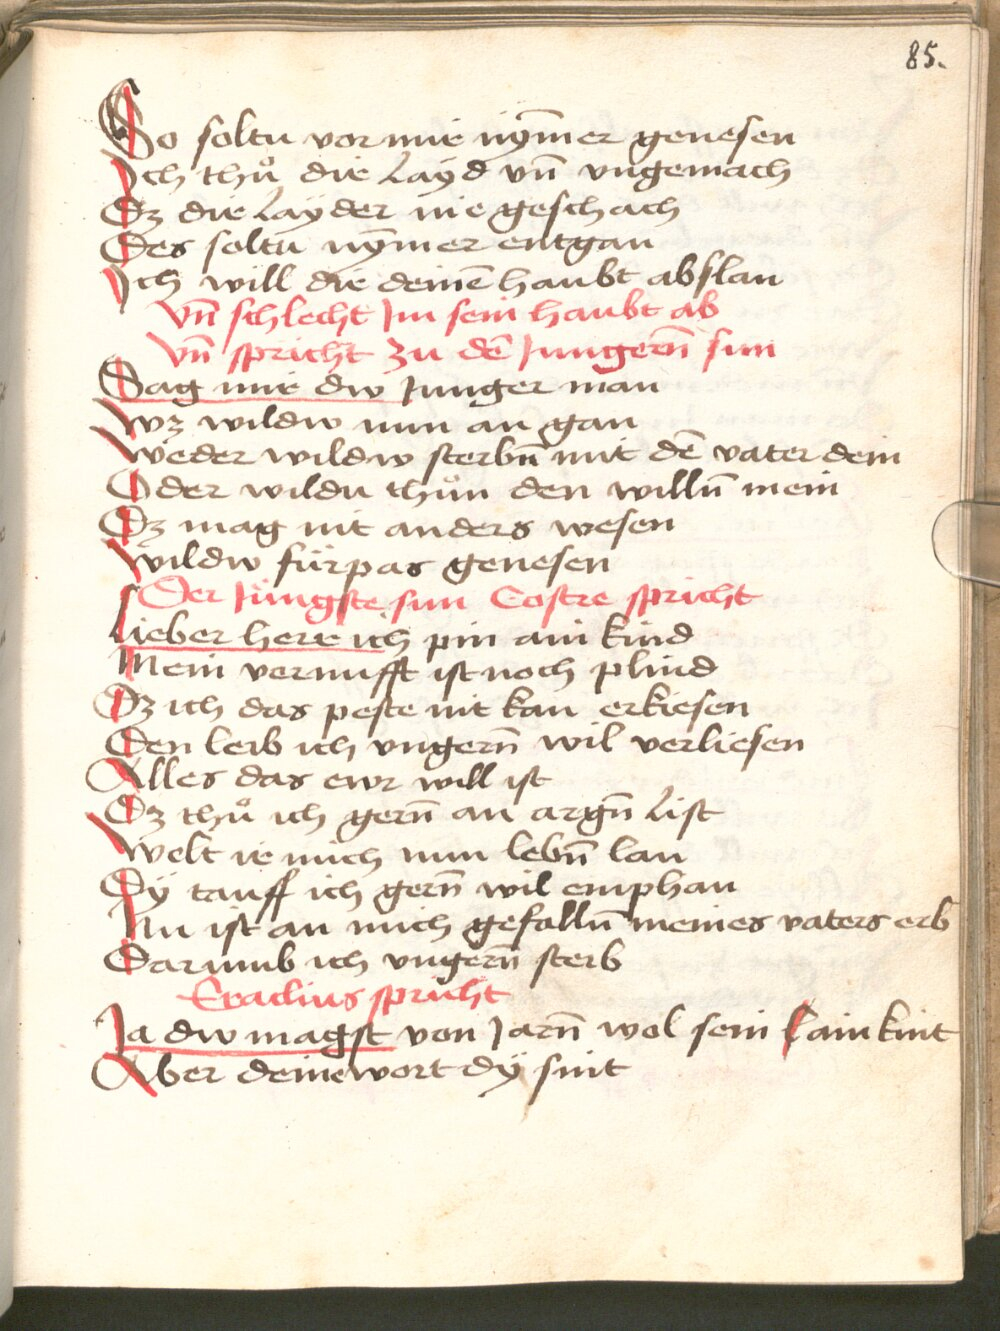 85.
So soltu vor mir nym̄er genesen
Ich thů dir Layd vn̄ vngemach
Dz dir Layder nie geschach
Des soltu nym̄er entgan
Ich will dir deinē haubt abslan
vn̄ schlecht Im sein haubt ab
vn̄ spricht zu dē Jungern̄ sun
Sag mir dw Junger man
wz wildw nun an gan
weder wildw sterbn̄ mit dē vater dein
Oder wildu thůn den willn̄ mein
Dz mag nit anders wesen
wildw fürpas genesen
Der Jüngste sun Costre spricht
Lieber here ich pin ain kind
Mein vernufft ist noch plind
Dz ich das peste nit kan erkiesen
Den leib ich vngern̄ wil verliesen
Alles das ewr will ist
Dz thů ich gern̄ an argn̄ List
welt ir mich nun lebn̄ lan
Dÿ tauff ich gern̄ wil emphan
Nu ist an mich gefalln̄ meines vaters erb
Darumb ich vngern̄ sterb
Eraclius spricht
Ja dw magst von Jarn̄ wol sein ain kint
Aber deine wort dÿ sint